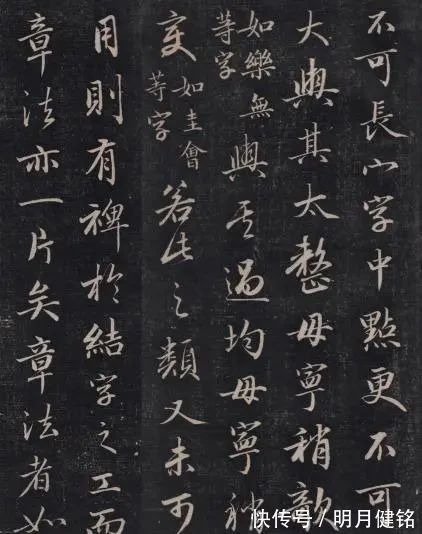 不可長小字中點更不可
大與其太整毋寧稍欹
如樂無
等字
與其過均毋寧稍
変
如圭會
等字
若此之類又未可
用則有裨於結字之工而
章法亦一片矣章法者如
快传号/明月健铭